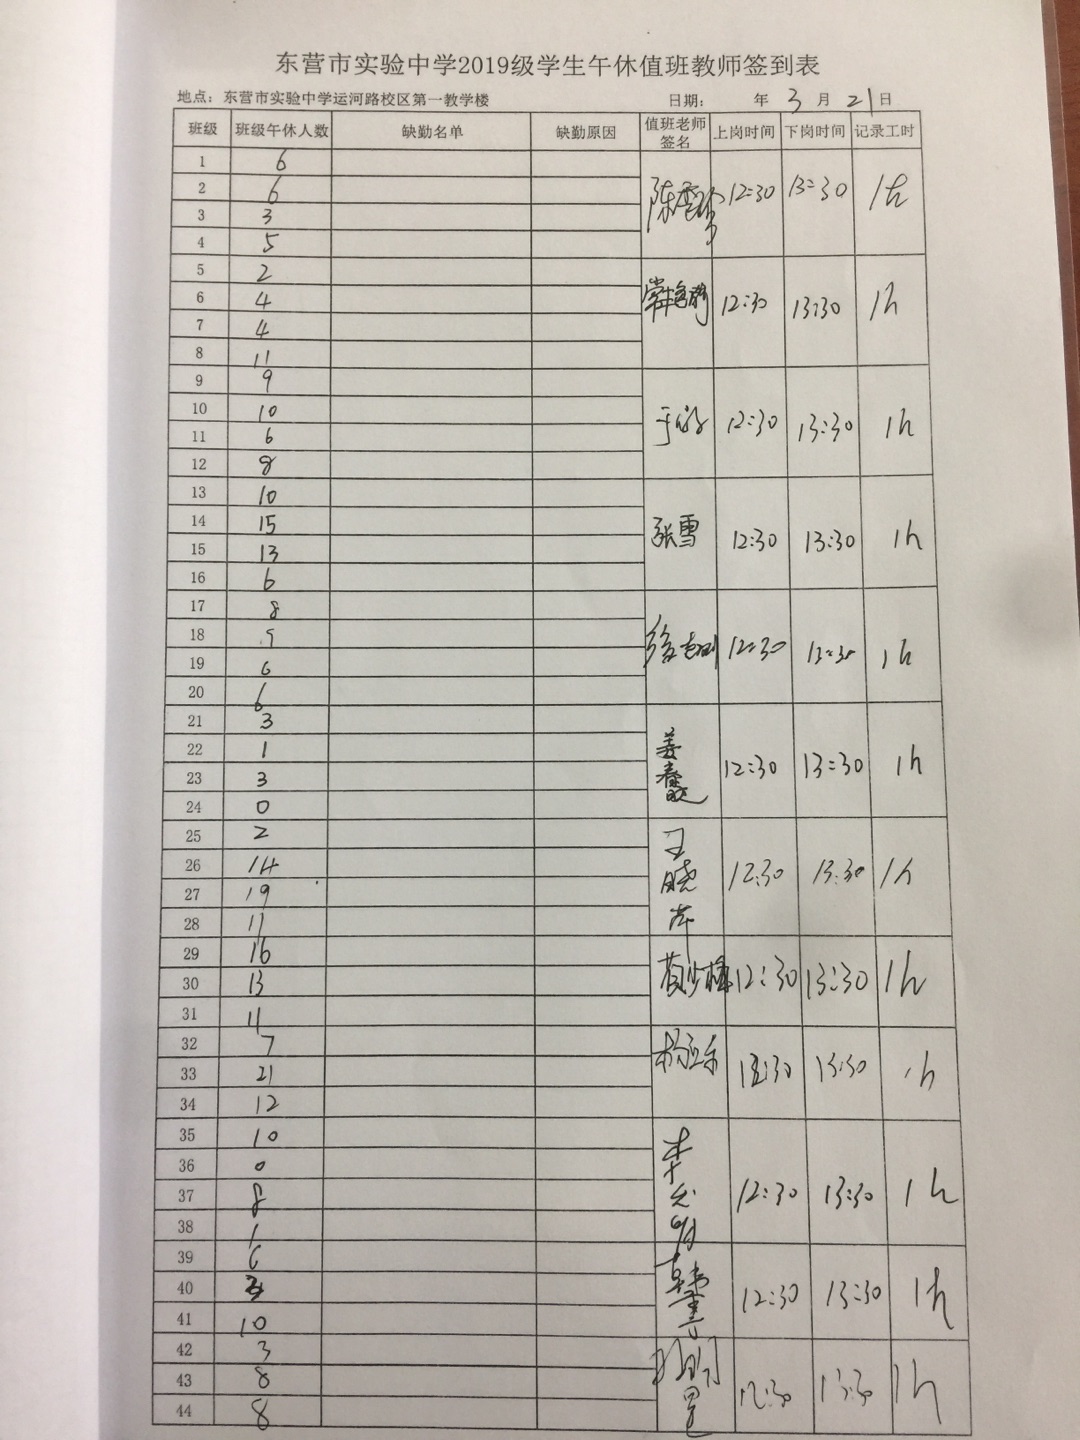 东营市实验中学2019级学生午休值班教师签到表
地点：东营市实验中学运河路校区第一教学楼 日期： 年 3 月 21 日
班级 班级午休人数 缺勤名单 缺勤原因 值班老师签名 上岗时间 下岗时间 记录工时
1 6
2 6 12:30 13:30 1h
3 3
4 5
5 2
6 4 12:30 13:30 1h
7 4
8 11
9 9
10 10 12:30 13:30 1h
11 6
12 8
13 10
14 15 张雪 12:30 13:30 1h
15 13
16 6
17 8
18
19 6 12:30 13:30 1h
20 6
21 3
22 1 12:30 13:30 1h
23 3
24 0
25 2
26 14 王晓 12:30 13:30 1h
27 19
28 11
29 16
30 13 12:30 13:30 1h
31 11
32 7
33 21 13:30 1h
34 12
35 10
36 0
37 8 12:30 13:30 1h
38 1
39 6
40 3 12:30 13:30 1h
41 10
42 3
43 8 12:30 13:30 1h
44 8